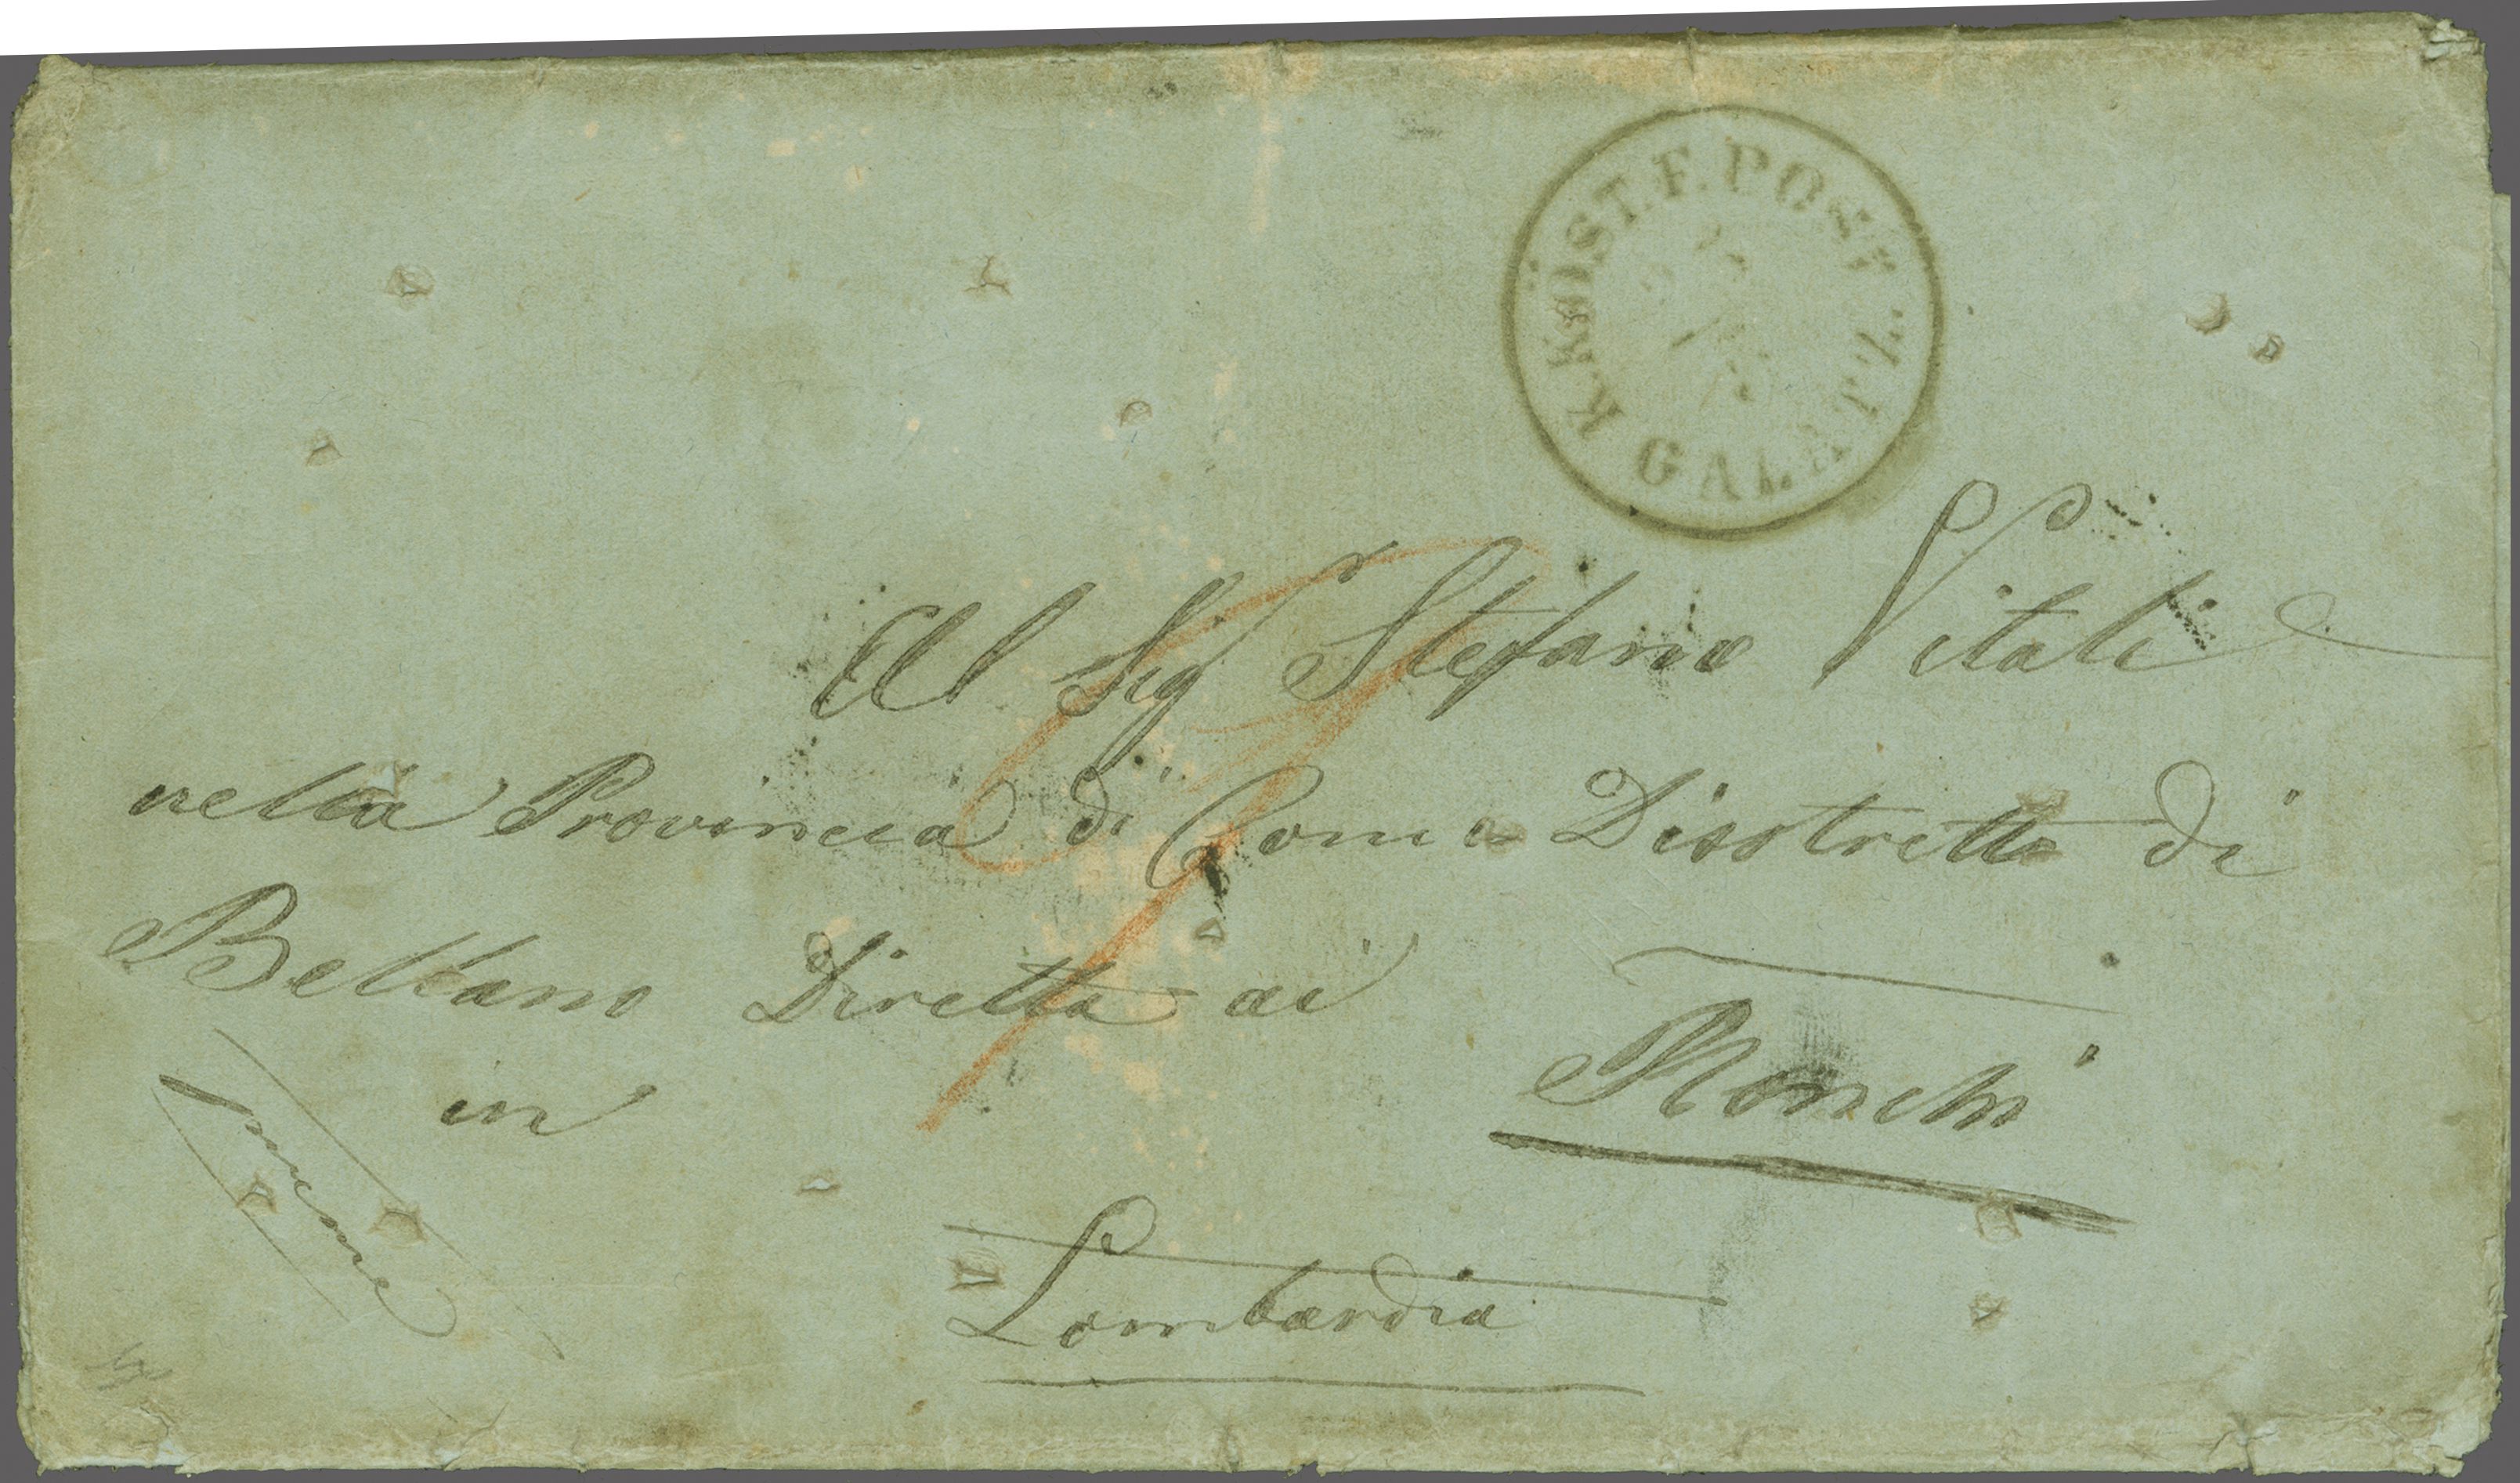 K.K.ÖST.F.POST Z.J.
GALATZ
Al Sigr Stefano Vitali
nella Provincia di Como Disstretto di
Bellano Diretta ai
in
Lombardia